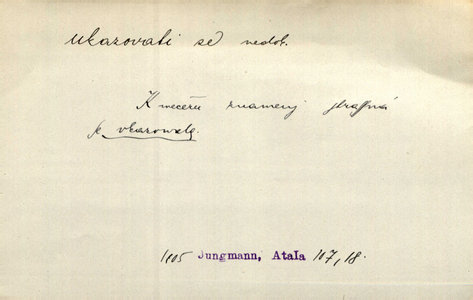 ukazovati se nedok.
K weceru znamenj strassná
se vkazowala.
1805 Jungmann, Atala 107, 18.